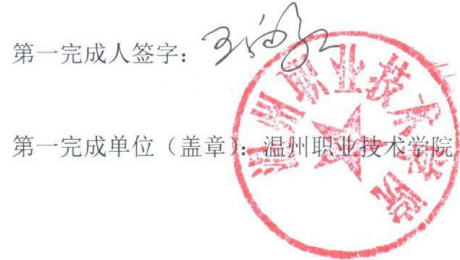 第一完成人签字：
第一完成单位（盖章）：温州职业技术学院
温州职业技术学院